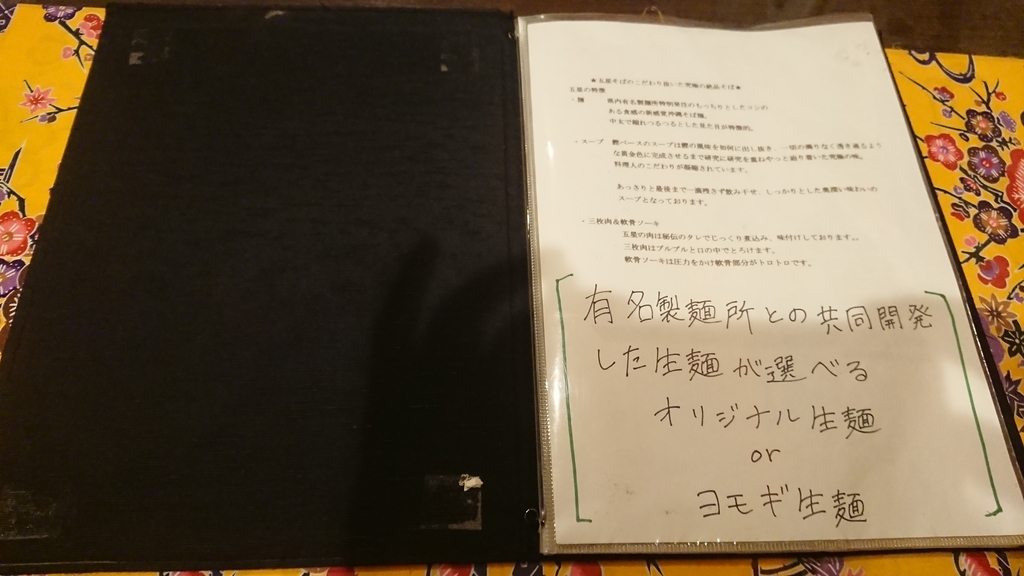 ★五星そばのこだわり抜いた究極の絶品そば★
五星の特徴
・麺 県内有名製麺所特別発注のもっちりとしたコシの
ある食感の新感覚沖縄そば麺。
中太で縮れつるつるとした見た目が特徴的。
・スープ 鰹ベースのスープは鰹の風味を如何に出し抜き、一切の濁りなく透き通るよう
な黄金色に完成させるまで研究に研究を重ねやっと辿り着いた究極の味。
料理人のこだわりが凝縮されています。
あっさりと最後まで一滴残さず飲み干せ、しっかりとした奥深い味わいの
スープとなっております。
・三枚肉&軟骨ソーキ
五星の肉は秘伝のタレでじっくり煮込み、味付けしております。。
三枚肉はプルプルと口の中でとろけます。
軟骨ソーキは圧力をかけ軟骨部分がトロトロです。
有名製麺所との共同開発
した生麺が選べる
オリジナル生麺
or
ヨモギ生麺